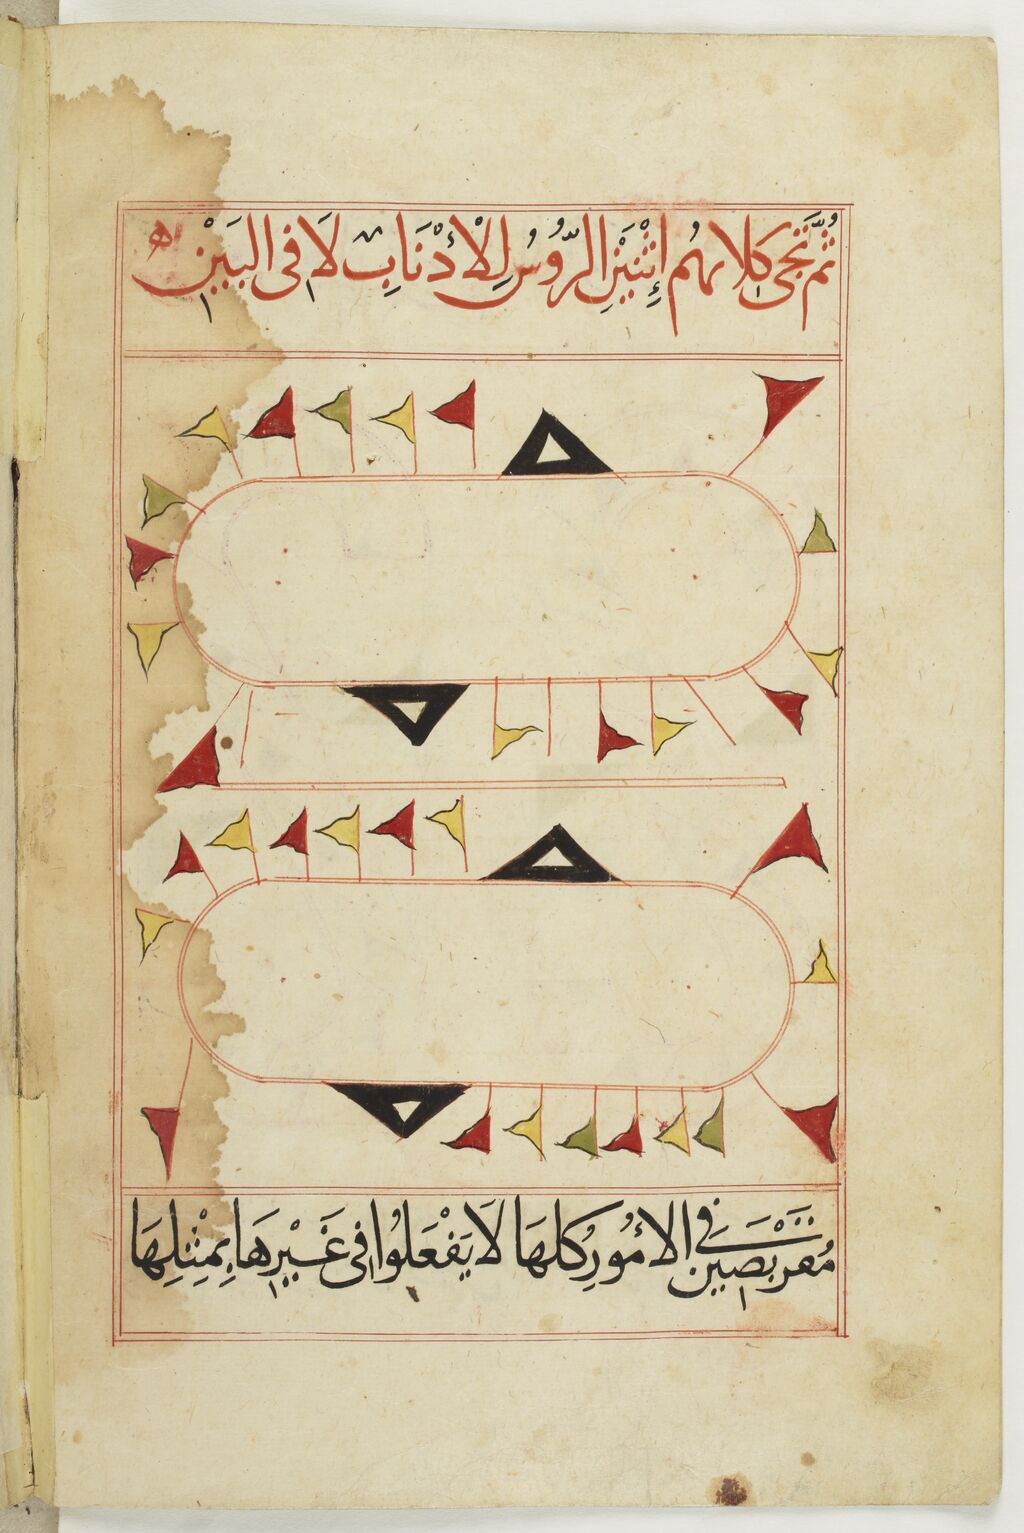 ثُمَّ تَجِى كِلَاهُم إِثْنَيْنِ الرُّوُسِ لِلْأَدْنَابِ لَا فِى البَيْنِ
فِى الأُمُورِ كُلِهَا لَا يَفْعَلُوا فِى غَيْرِهَا بِمِثْلِهَا